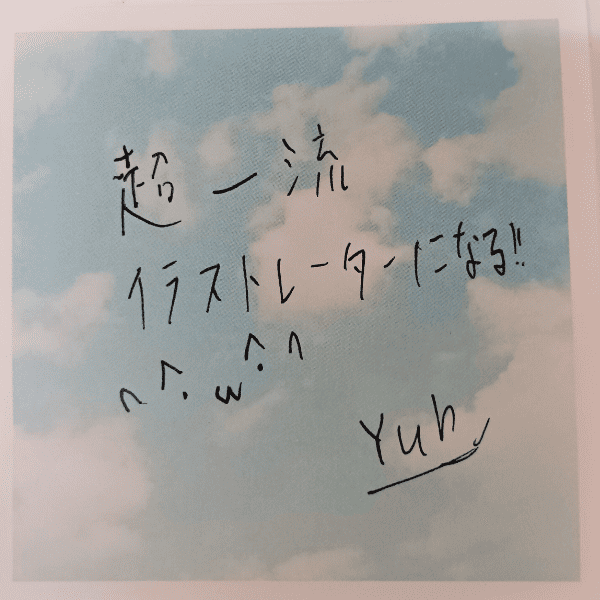 超一流
イラストレーターになる!!
^ ^. w ^. ^
Yuh.